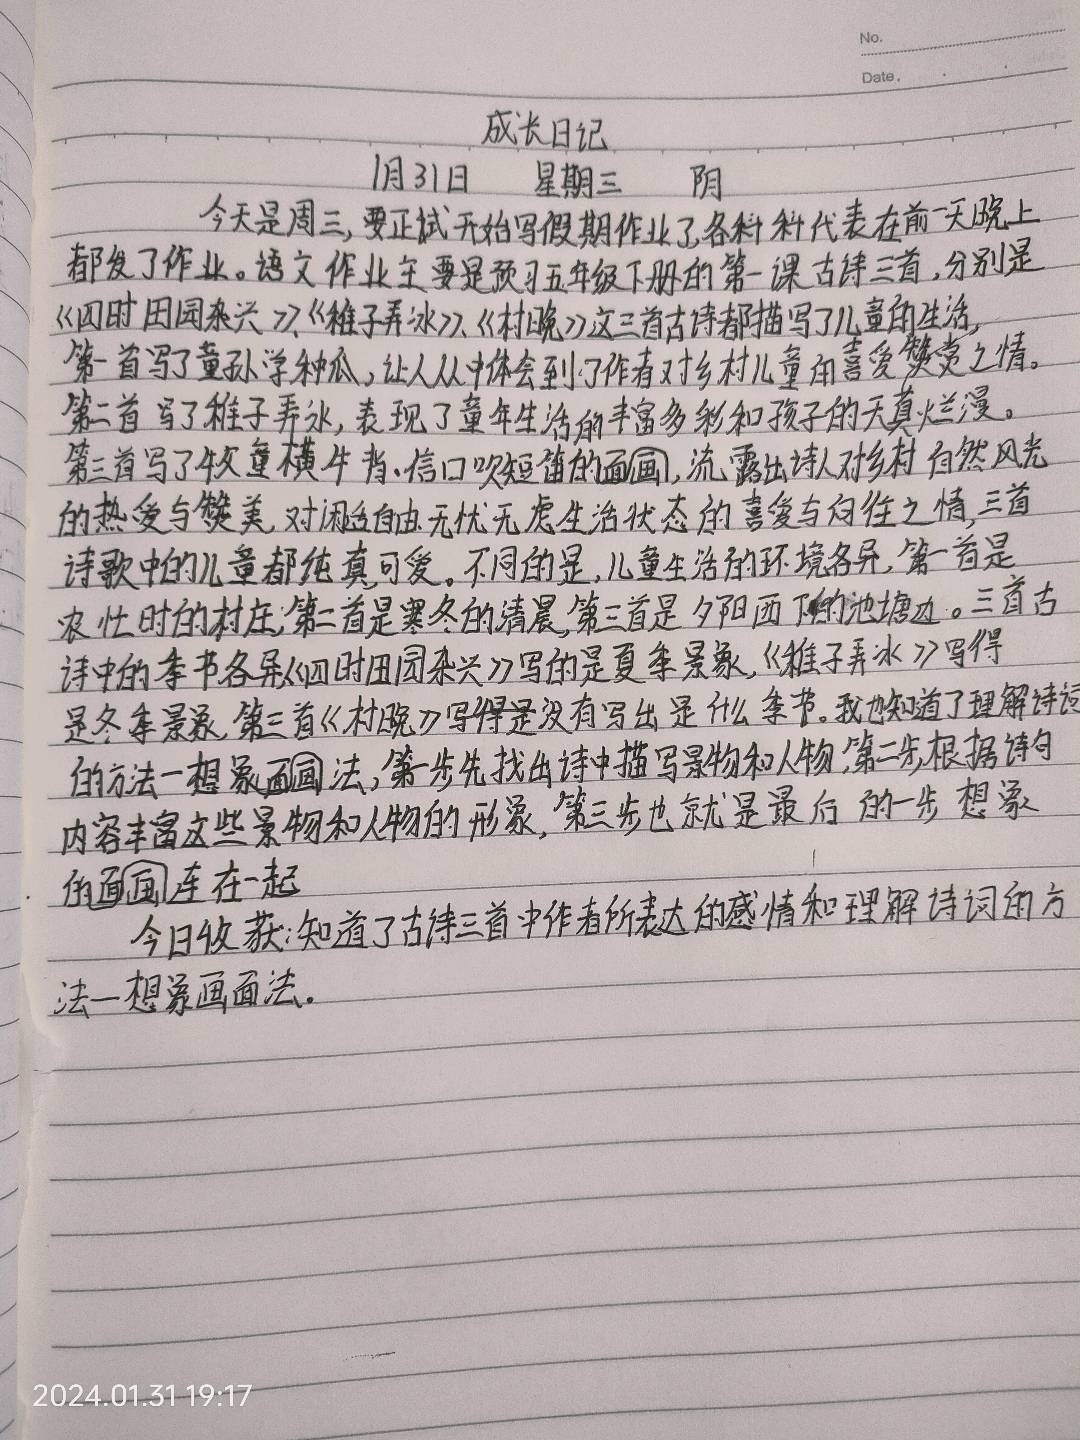 No.
Date.
成长日记
1月31日 星期三 阴
今天是周三,要正试开始写假期作业了,各科科代表在前一天晚上
都发了作业。语文作业主要是预习五年级下册的第一课古诗三首,分别是
《四时田园杂兴》、《稚子弄冰》、《村晚》这三首古诗都描写了儿童的生活,
第一首写了童孙学种瓜,让人从中体会到了作者对乡村儿童的喜爱赞赏之情。
第二首写了稚子弄冰,表现了童年生活的丰富多彩和孩子的天真烂漫。
第三首写了牧童横牛背、信口吹短笛的面画,流露出诗人对乡村自然风光
的热爱与赞美,对闲适自由无忧无虑生活状态的喜爱与向往之情,三首
诗歌中的儿童都纯真可爱。不同的是,儿童生活的环境各异,第一首是
农忙时的村庄;第二首是寒冬的清晨,第三首是夕阳西下的池塘边。三首古
诗中的季书各异《四时田园杂兴》写的是夏季景象,《稚子弄冰》写得
是冬季景象,第三首《村晚》写得是没有写出是什么季书。我也知道了理解诗词
的方法一想象面画法,第一步先找出诗中描写景物和人物,第二步,根据诗句
内容丰富这些景物和人物的形象,第三步也就是最后的一步想象
的面画连在一起
今日收获:知道了古诗三首中作者所表达的感情和理解诗词的方
法一想象画面法.
2024.01.31 19:17